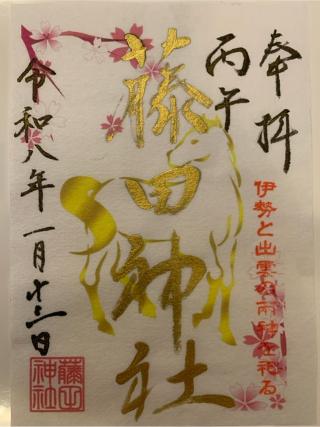 奉拝
丙午
伊勢と出雲の両神を祀る
藤田神社
令和八年一月十二日
藤田神社